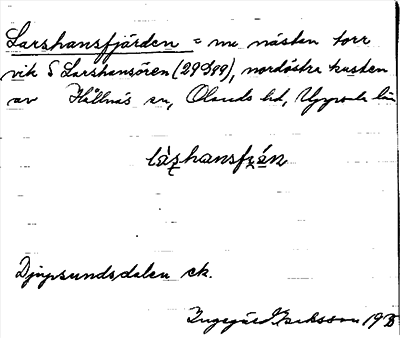 Larshansfjärden = nu nästan torr
vik S Larshansören (29D99), nordöstra kusten
av Hållnäs sn, Olands hd, Uppsala län
làṣhansfjạ́n
Djupsundsdalen ek.
Ingegärd Eriksson 19